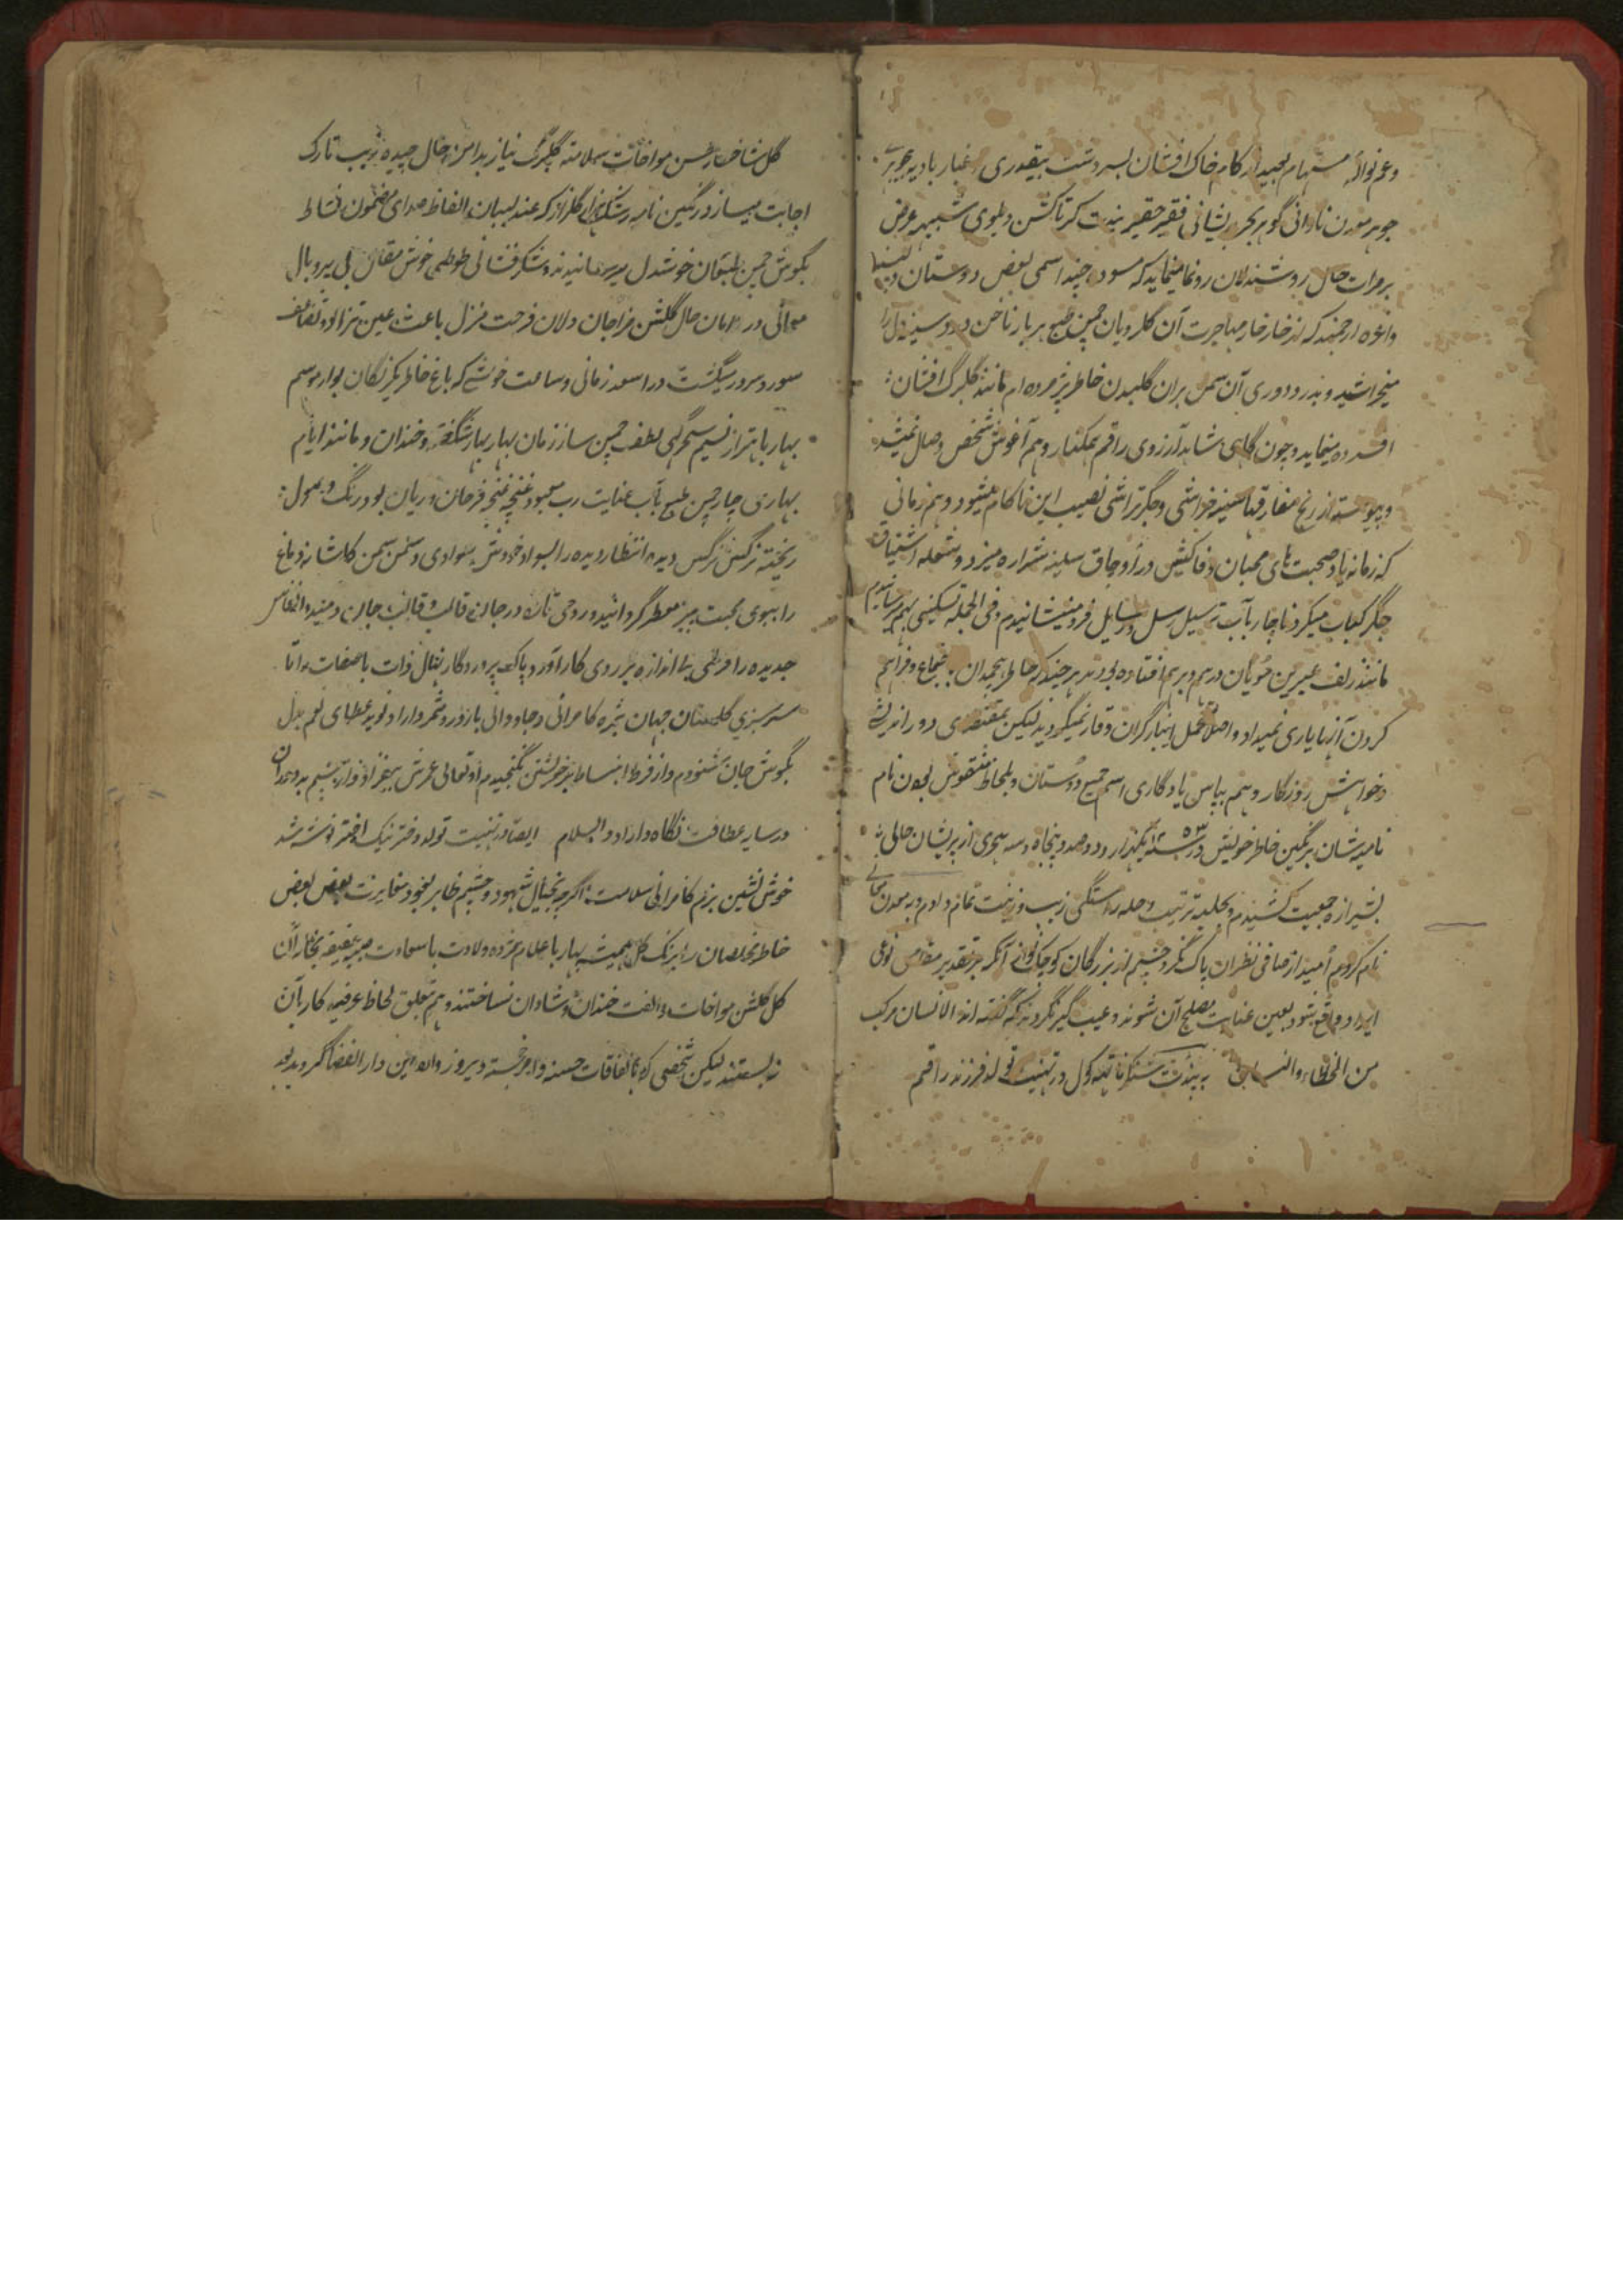 وعم نواله مستهام بعید از کام خاک افشان بسر دشت بیقدری غبار بادیه
جوهر معدن نادانی گوهر بحر پریشانی فقیر حقیر پندت کرتاکشن دهلوی عرض
برمرات حال روشندلان رونما مینماید که مسوده چند اسمی بعض دوستان
واعزه ارجمند که از خار خار مهاجرت آن گلرویان چمن طبع هر بار ناخن دل را
میخراشید و بدرد دوری آن سمن بران گلبدن خاطر پژمرده ام مانند گلبرگ افشان
افسرده مینماید و چون گاهی شاهد آرزوی راقم همکنار و هم آغوش شخص وصال نمیشد
و پیوسته از رنج مفارقتها سینه خراشی و جگر تراشی نصیب این ناکام میشود و هم زمانی
که زمانه یاد صحبت های محبان وفاکیش در اوجاق سینه شراره میزد و شعله اشتیاق
جگر کباب میکرد ناچار بآب ترسیل رسل و رسایل فرو مینشانیدم و فی الجمله تسکینی بهم میرسانیدم
مانند زلف عنبرین مویان درهم و برهم افتاده بودند هر چند که خاطر هیچمدان بجماع و فراهم
کردن آنها یاری نمیداد و اصلا متحمل اینبار گران وقار نمیگردید لیکن بمقتضای دور اندیشی
و خواهش روزگار و هم بپاس یادگاری اسم جمیع دوستان و بلحاظ منقوش بودن نام
نامیشان برنگین خاطر خویش در سنه ۱۲۵۳ یکهزار و دو صد و پنجاه و سه هجری از پریشان حالی
بشیرازه جمعیت کشیدم و بحلیه ترتیب و حله آراستگی زیب و زینت تمام دادم و به معدن معانی
نام کردم امید از صافی نظران پاک نگر و چشم از بزرگان آنکه بر تقدیر نوعی
ایراد واقع شود بعین عنایت مصلح آن شوند و عیب گیر نگردند که گفته اند الانسان مرکب
من الخطاء والنسیان به پندت شنکر ناتهه کول در تهنیت تولد فرزند راقم
گل شاخسار حسن موافقات سلامته گلبرگ نیاز بدامن حال چیده زیب تارک
اجابت میسازد رنگین نامه رشک گلزار که عندلیبان الفاظ صدای مضمون نشاط
بگوش چمن طبعان خوشدل میرسانیدند و شکر فشانی طوطی خوش مقال بی پر و بال
معانی در حال گلشن مزاجان دلان فرحت منزل باعث عین تزاید و تضاعف
سور و سرور میگشت در اسعد زمانی و ساعت خوشی که باغ خاطر یکرنگان بوارد موسم
بهار باهتزاز نسیم سحرگهی لطف چمن ساز زمان بهار بهار شگفته و خندان و مانند ایام
بهاری چار چمن طبع بآب عنایت رب معبود غنچه غنچه فرحان و ریان بود و رنگ وصول
ریخته نرگس نرگس دیده انتظار دیده را بسواد خودش سوادی و سمن سمن کاشانه دماغ
را ببوی محبت بیز معطر گردانید و روحی تازه در جان قالب و قالب جان دمید و انفاس
جدیده را فرحتی بی اندازه بر روی کار آورد پاک پروردگار نهال ذات با صفات را تا
سرسبزی گلستان جهان بثمره کامرانی و جاودانی بارور و ثمر دارد و نوید عطیای نعم بدل
بگوش جان شنودم و از فرط انبساط بر خویشتن نگنجیدم او تعالی عمرش بیفزاد
در سایه عطافت نگاه دارد و السلام ایضا در تهنیت تولد دختر نیک اختر نوشته شد
خوش نشین بزم کامرانی سلامت اگرچه بخیال شهود و چشم ظاهر بخود مغایرت بعض بعض
خاطر مخلصان را برنگ گل همیشه بهار باعلام مژده ولادت با سعادت
گل گلشن موافقات و الفت خندان و شادان نساختند و هم متعلق لحاظ عرفیه کار بآن
نه بستند لیکن شخصی که باتفاقات حسنه دیروز وارد این دار الفضا گردید بود